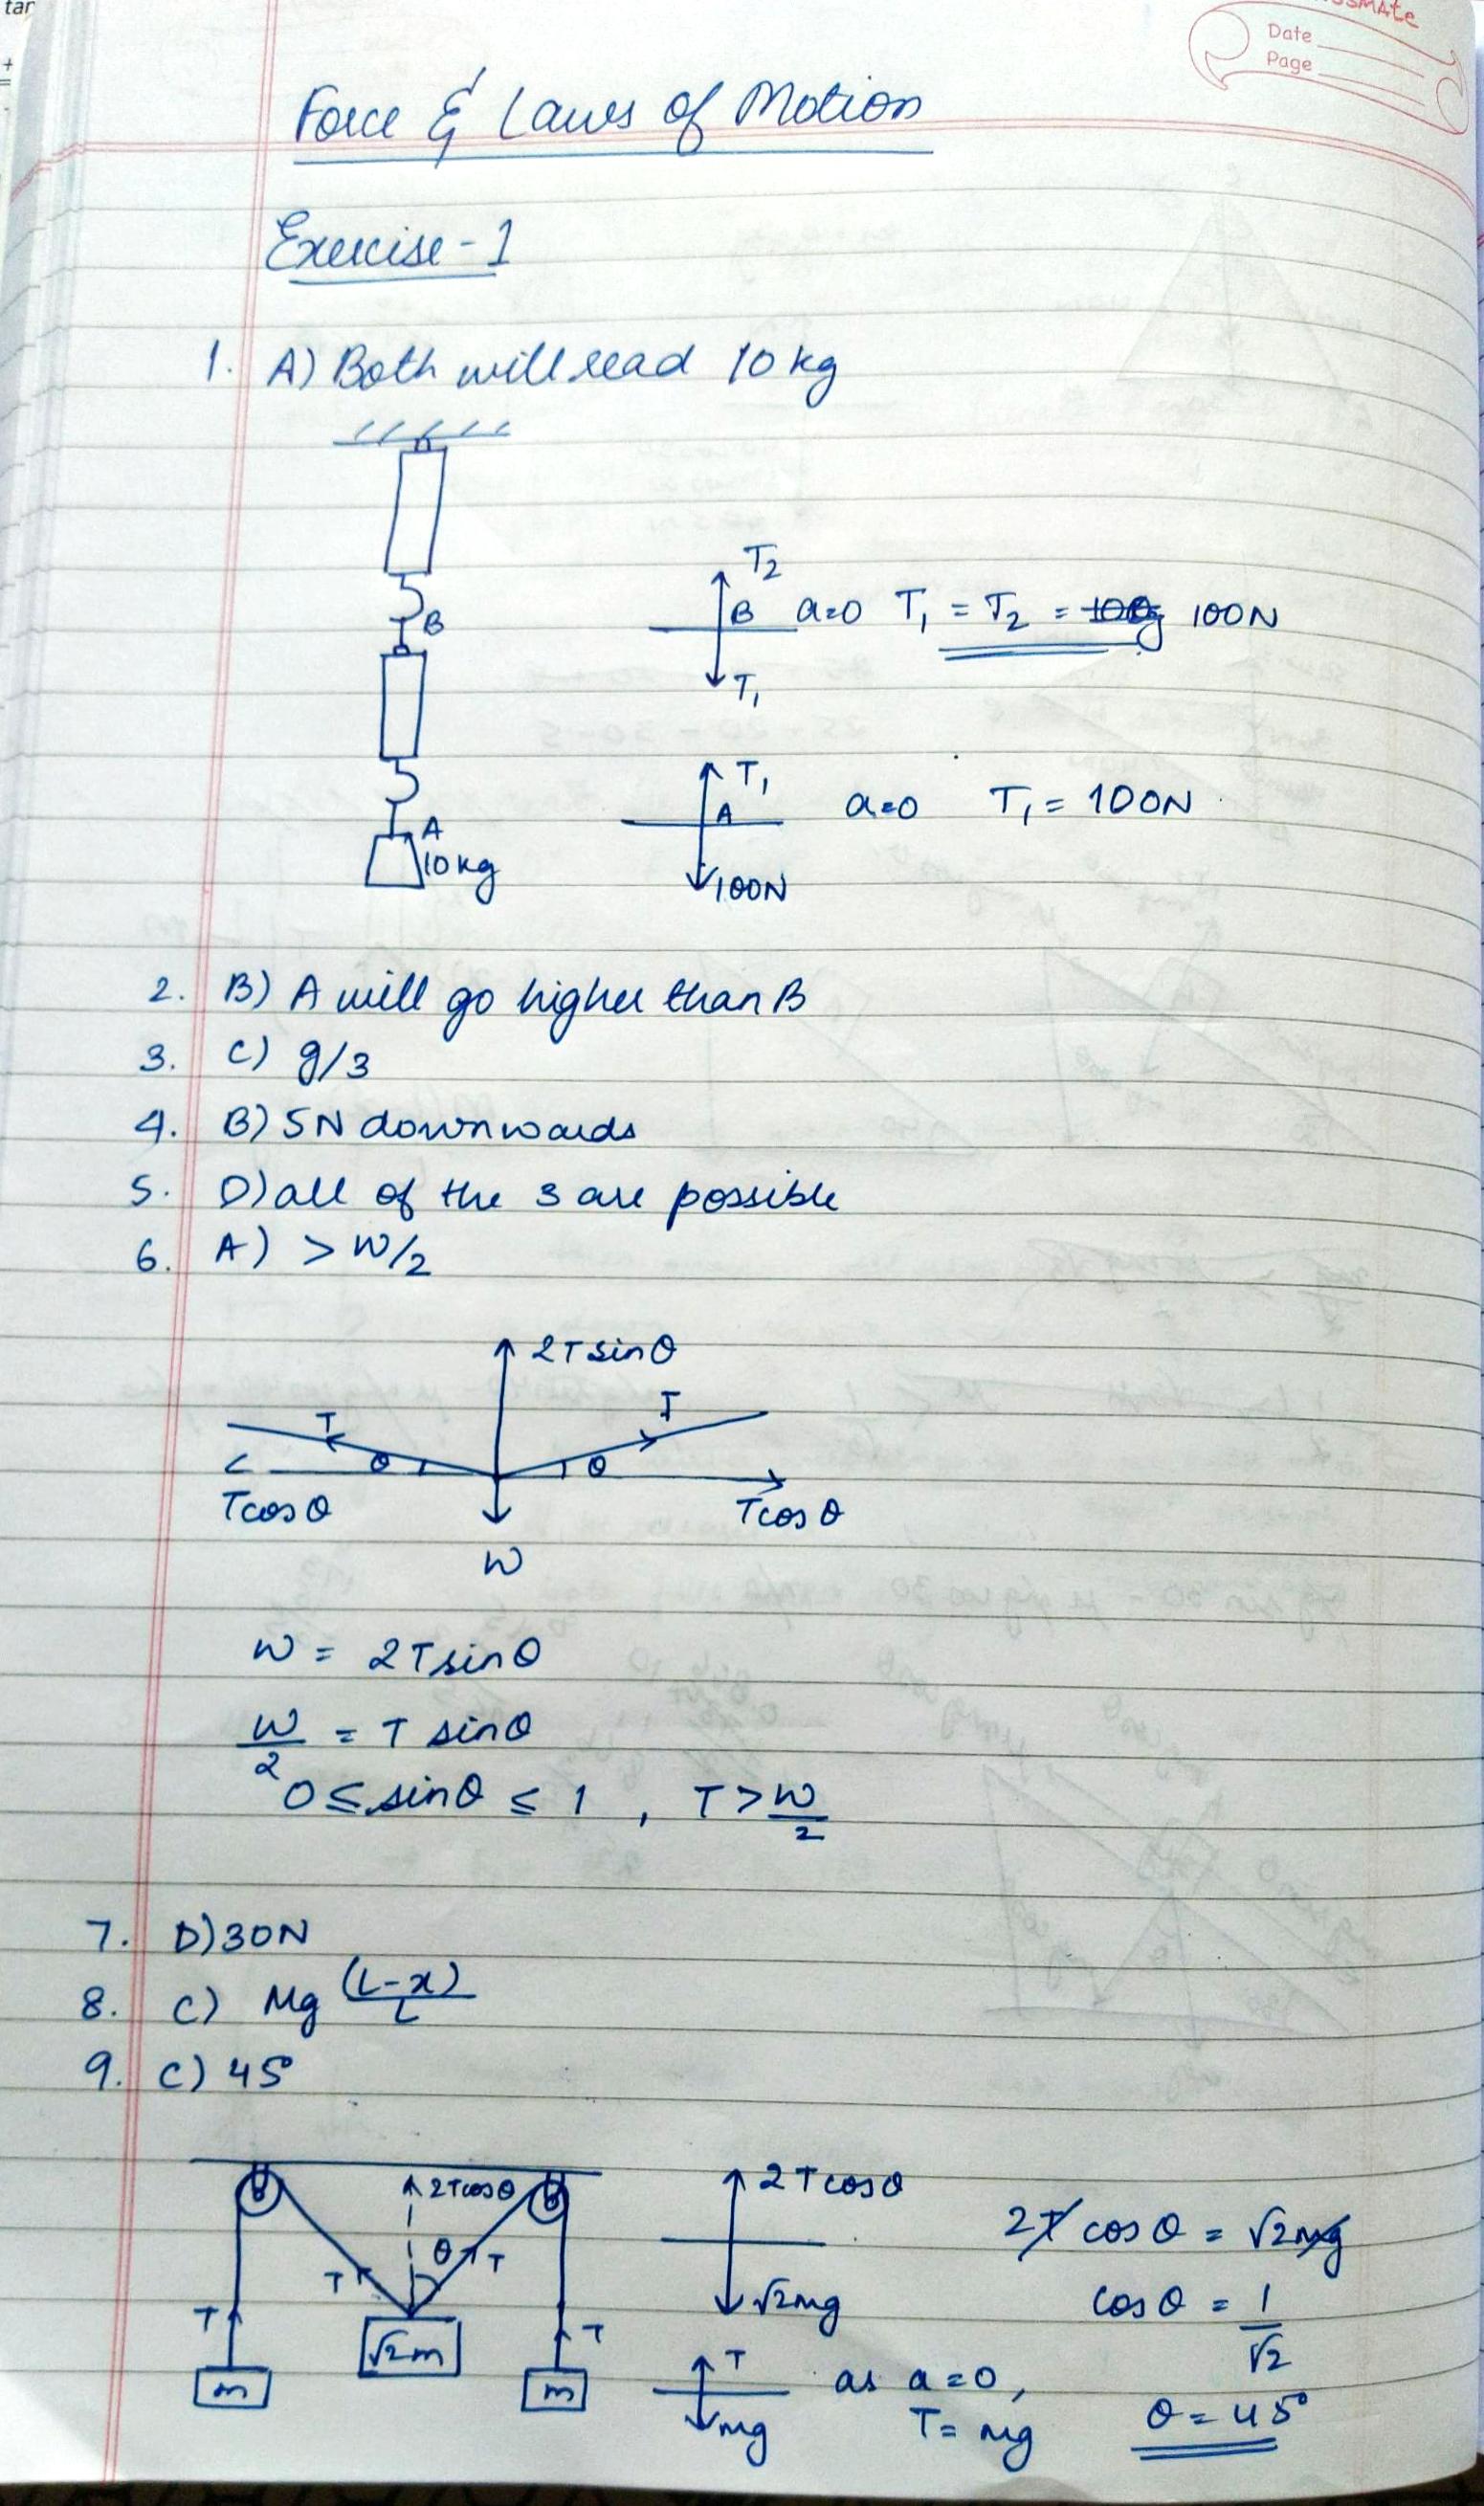 tar
Date
Page
Force & Laws of Motion
Exercise - 1
1. A) Both will read 10 kg
B
T2
B a=0 T₁ = T₂ = 100N
T₁
T₁
A a=0 T₁ = 100N
100N
A
10 kg
2. B) A will go higher than B
3. C) g/3
4. B) 5N downwards
5. D) all of the 3 are possible
6. A) > W/2
2T sinθ
T T
θ θ
Tcosθ Tcosθ
W
W = 2Tsinθ
W/2 = T sinθ
0 ≤ sinθ ≤ 1 , T > W/2
7. D) 30N
8. C) Mg (L-x)/L
9. C) 45°
2Tcosθ
θ T
T
T T
√2m
m m
2Tcosθ
√2mg
T
mg
as a=0,
T= mg
2T cosθ = √2mg
cosθ = 1/√2
θ = 45°